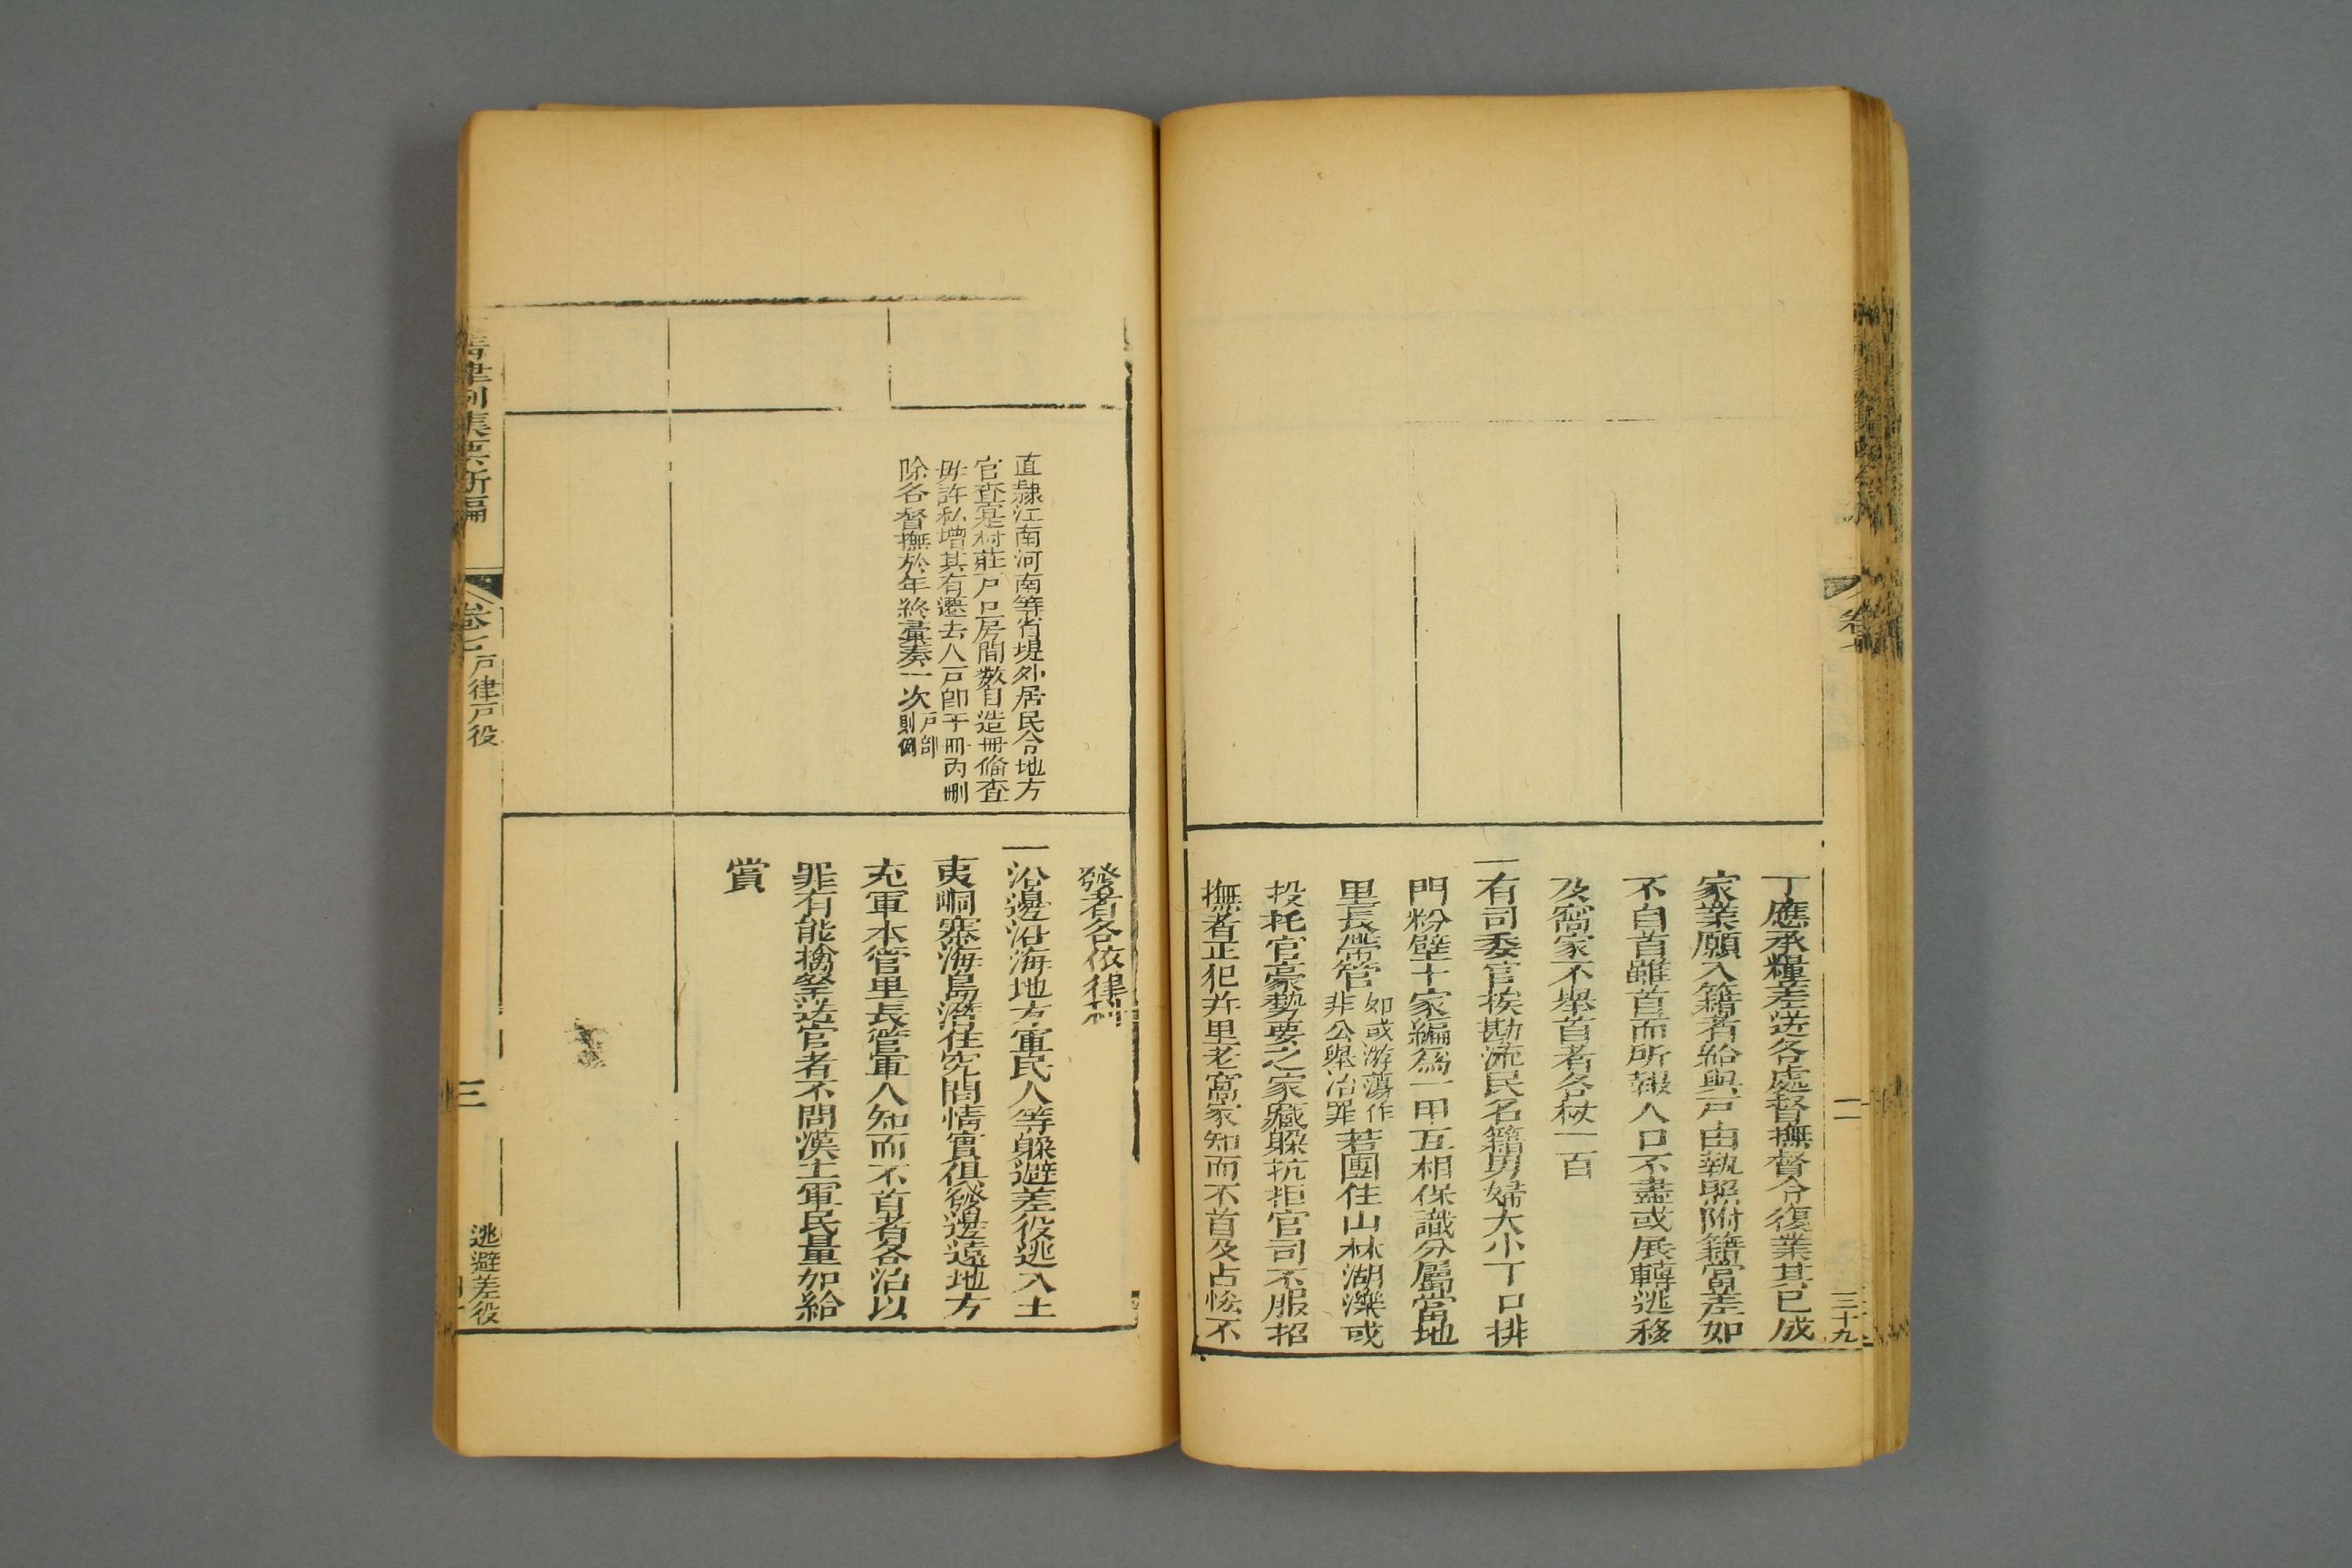 丁應承糧差送各處督撫督令復業其已成
家業願入籍者給與戸由執照附籍當差如
不自首雖首而所報人口不盡或展轉逃移
及窩家不舉首者各杖一百
一有司委官挨勘流民名籍男婦大小丁口排
門粉壁十家編爲一甲互相保識分屬當地
里長帶管如或游蕩作非公舉治罪若團住山林湖濼或
投托官豪勢要之家藏躲抗拒官司不服招
撫者正犯并里老窩家知而不首及占恡不
卷七
三十九
直隷江南河南等省堤外居民令地方
官查寔村莊戸口房間數目造冊偹查
毋許私增其有遷去人戸卽于冊內刪
除各督撫於年終彙奏一次戸部則例
發者各依律科
一沿邊沿海地方軍民人等躲避差役逃入土
夷峒寨海島潛住究問情實俱發邊遠地方
充軍本管里長管軍人知而不首者各治以
罪有能擒拏送官者不問漢土軍民量加給
賞
清律例集要新編
卷七
戸律戸役
三
逃避差役